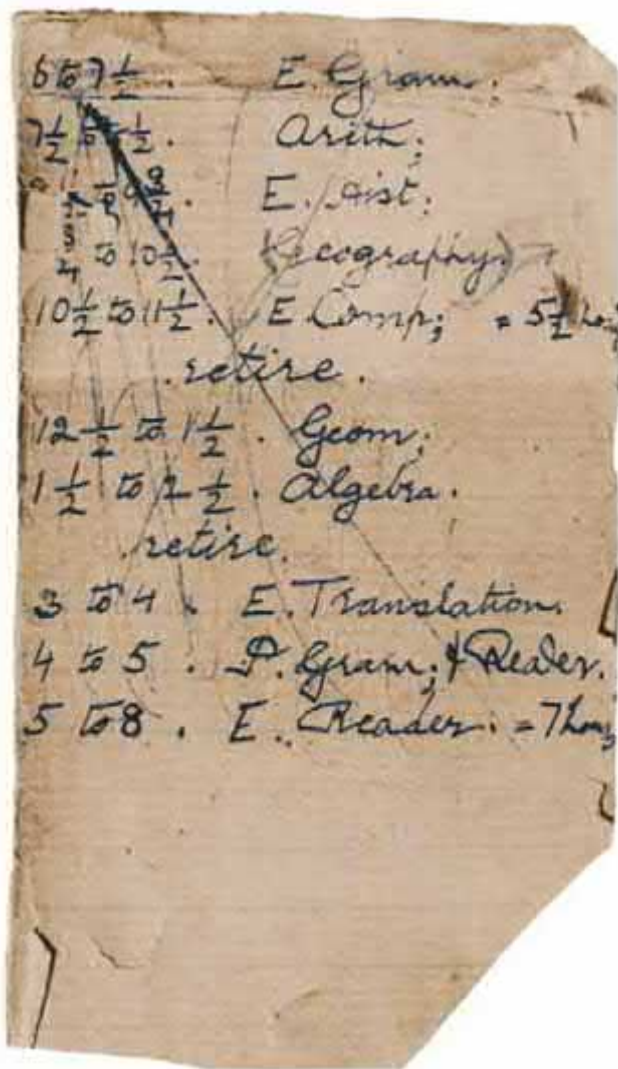 6 to 7 1/2 . E. Gram;
7 1/2 to 1/2 . Arith;
to 9 3/4 . E. Hist:
to 10 1/2 . (Geography)
10 1/2 to 11 1/2 . E. Comp; = 5 1/2
retire .
12 1/2 to 1 1/2 . Geom;
1 1/2 to 2 1/2 . Algebra .
retire .
3 to 4 . E. Translation .
4 to 5 . P. Gram; & Reader .
5 to 8 . E. Reader . = 7